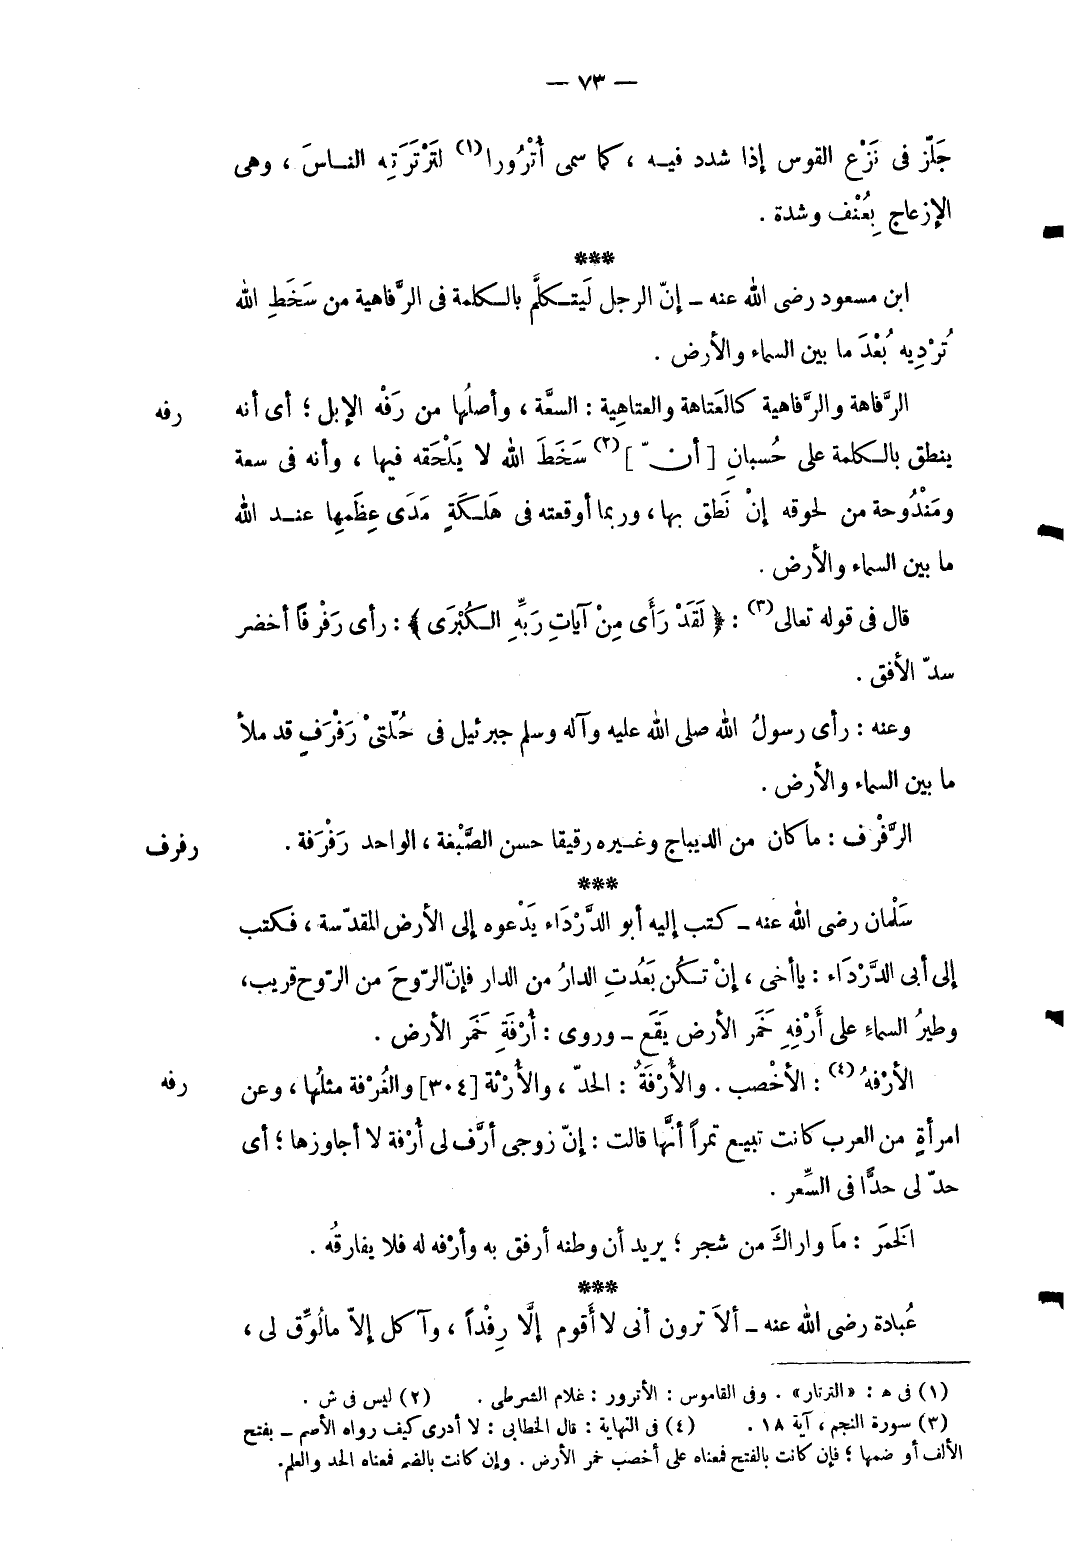 — ٧٣ —
جَلّز فى نَزْع القوس إذا شدد فيه ، كما سمى أُتْرُورا(١) لتَرْتَرَتِه الناسَ ، وهى
الإزعاج بِعُنْف وشدة .
***
ابن مسعود رضى الله عنه ــ إنّ الرجل لَيتكلَّم بالكلمة فى الرَّفاهية من سَخَطِ الله
تُرْدِيه بُعْدَ ما بين السماء والأرض .
الرَّفاهة والرَّفاهية كالعَتاهة والعتاهِية : السعَّة ، وأصلُها من رَفْه الإبل ؛ أى أنه
رفه
ينطق بالكلمة على حُسبانِ [ أنّ ](٢) سَخَطَ الله لا يَلْحَقه فيها ، وأنه فى سعة
ومَنْدُوحة من لحوقه إنْ نَطق بها ، وربما أوقعته فى هَلَكَةٍ مَدَى عِظَمِها عند الله
ما بين السماء والأرض .
قال فى قوله تعالى(٣) : ﴿ لَقَدْ رَأَى مِنْ آيَاتِ رَبِّهِ الكُبْرَى ﴾ : رأى رَفْرفًا أخضر
سدّ الأفق .
وعنه : رأى رسولُ الله صلى الله عليه وآله وسلم جبرئيل فى حُلّتىْ رَفْرَفٍ قد ملأ
ما بين السماء والأرض .
الرَّفْرف : ما كان من الديباج وغيره رقيقا حسن الصَّبْغة ، الواحد رَفْرَفة .
رفرف
***
سَلْمان رضى الله عنه ــ كتب إليه أبو الدَّرْدَاء يَدْعوه إلى الأرض المقدّسة ، فكتب
إلى أبى الدَّرْدَاء : ياأخى ، إنْ تكُن بَعُدتِ الدارُ من الدار فإنّ الرّوحَ من الرّوح قريب،
وطيرُ السماءِ على أَرْفِهِ خَمَر الأرض يَقَع ــ وروى : أُرْفَةِ خَمَر الأرض .
الأرْفهُ(٤) : الأخْصب . والأُرْفَةُ : الحدّ ، والأُرْثة [٣٠٤] والغُرْفة مثلُها ، وعن
رفه
امرأةٍ من العرب كانت تبيع تمراً أنَّها قالت : إنّ زوجى أرَّف لى أُرْفة لا أجاوزها ؛ أى
حدّ لى حدًّا فى السِّعر .
الخمَر : مَا واراكَ من شجر ؛ يريد أن وطنه أرفق به وأرْفه له فلا يفارقُه .
***
عُبادة رضى الله عنه ــ ألاَ ترون أنى لا أَقوم إلَّا رِفْداً ، وآكل إلاّ مالُوِّق لى ،
(١) فى هـ : «الترتار» . وفى القاموس : الأترور : غلام الشرطى . (٢) ليس فى ش .
(٣) سورة النجم ، آية ١٨ . (٤) فى النهاية : قال الخطابى : لا أدرى كيف رواه الأصم ــ بفتح
الألف أو ضمها ؛ فإن كانت بالفتح فمعناه على أخصب خمر الأرض . وإن كانت بالضم فمعناه الحد والعلم.